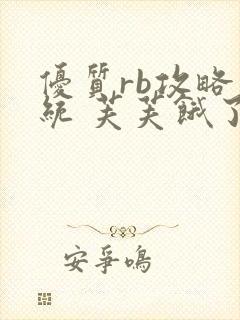 優質rb攻略
統 芙芙餓了
安爭鳴